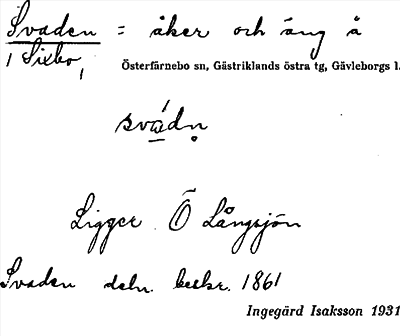 Svaden = åker och äng å
i Sixbo,
Österfärnebo sn, Gästriklands östra tg, Gävleborgs l.
svadn
Ligger Ö Långsjön
Svaden deln. beskr. 1861
Ingegärd Isaksson 1931